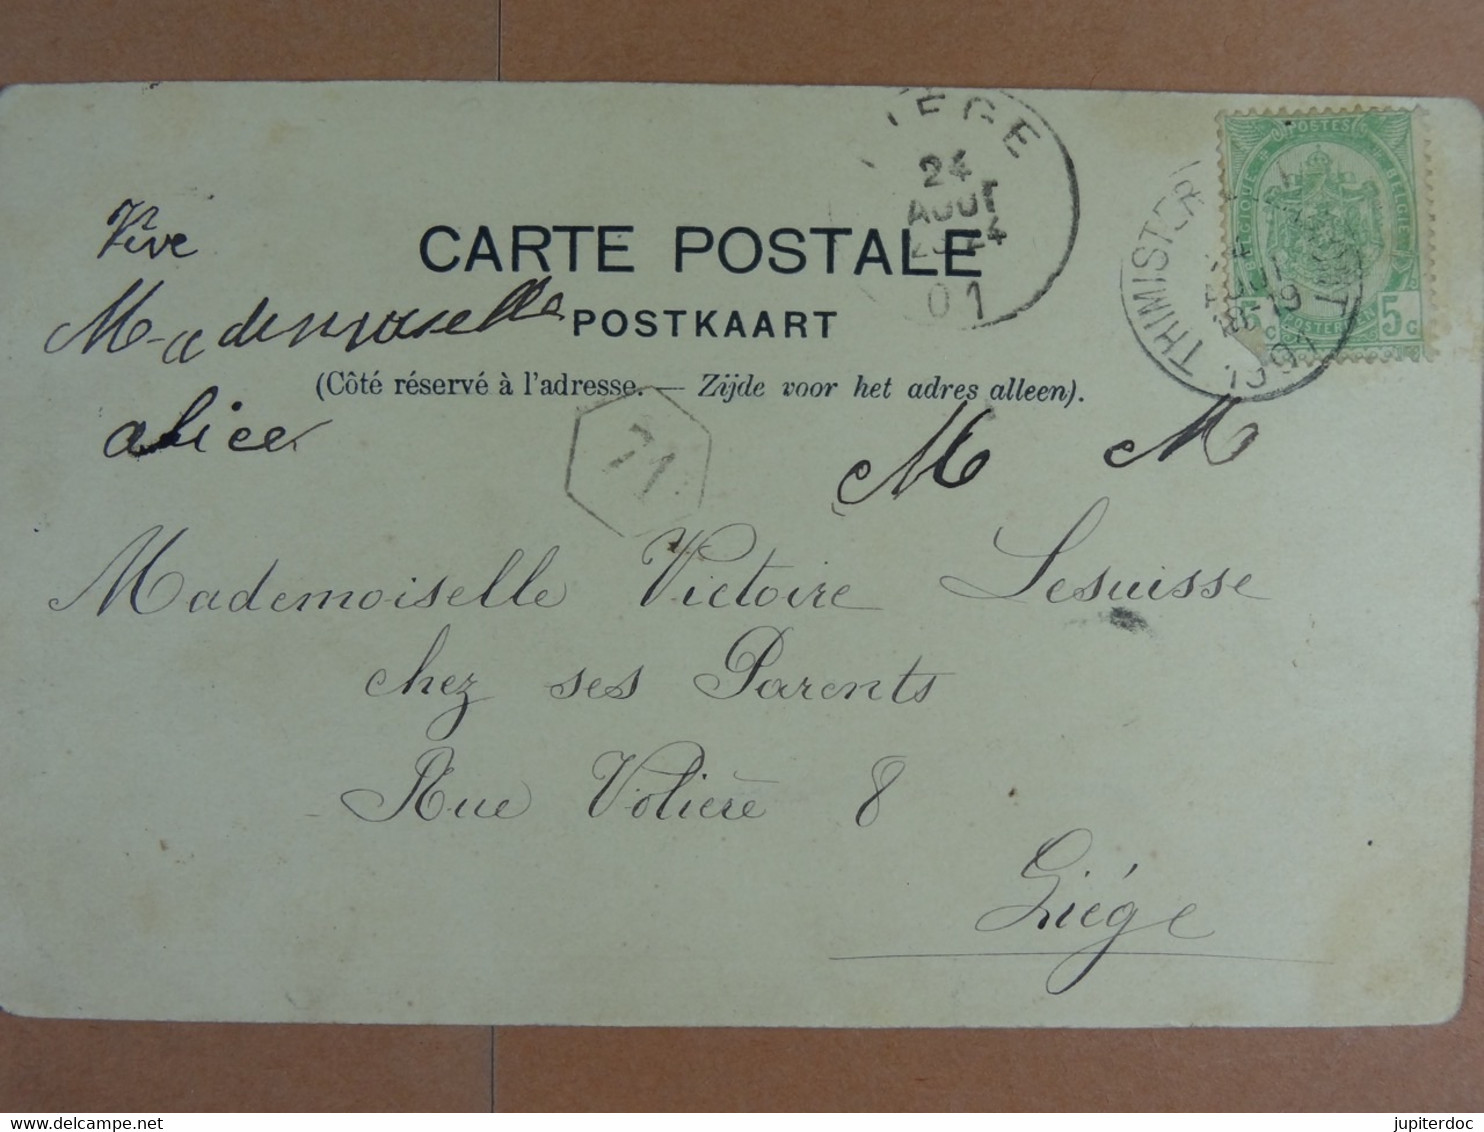 CARTE POSTALE
POSTKAART
(Côté réservé à l'adresse. — Zijde voor het adres alleen).
Vive
Mademoiselle
alice
IEGE
24
AOUT
01
THIMISTER
AOUT
18-19
1901
POSTES
BELGIE
5c
71
M M
Mademoiselle Victoire Lesuisse
chez ses Parents
Rue Volière 8
Liége
delcampe.net
jupiterdoc